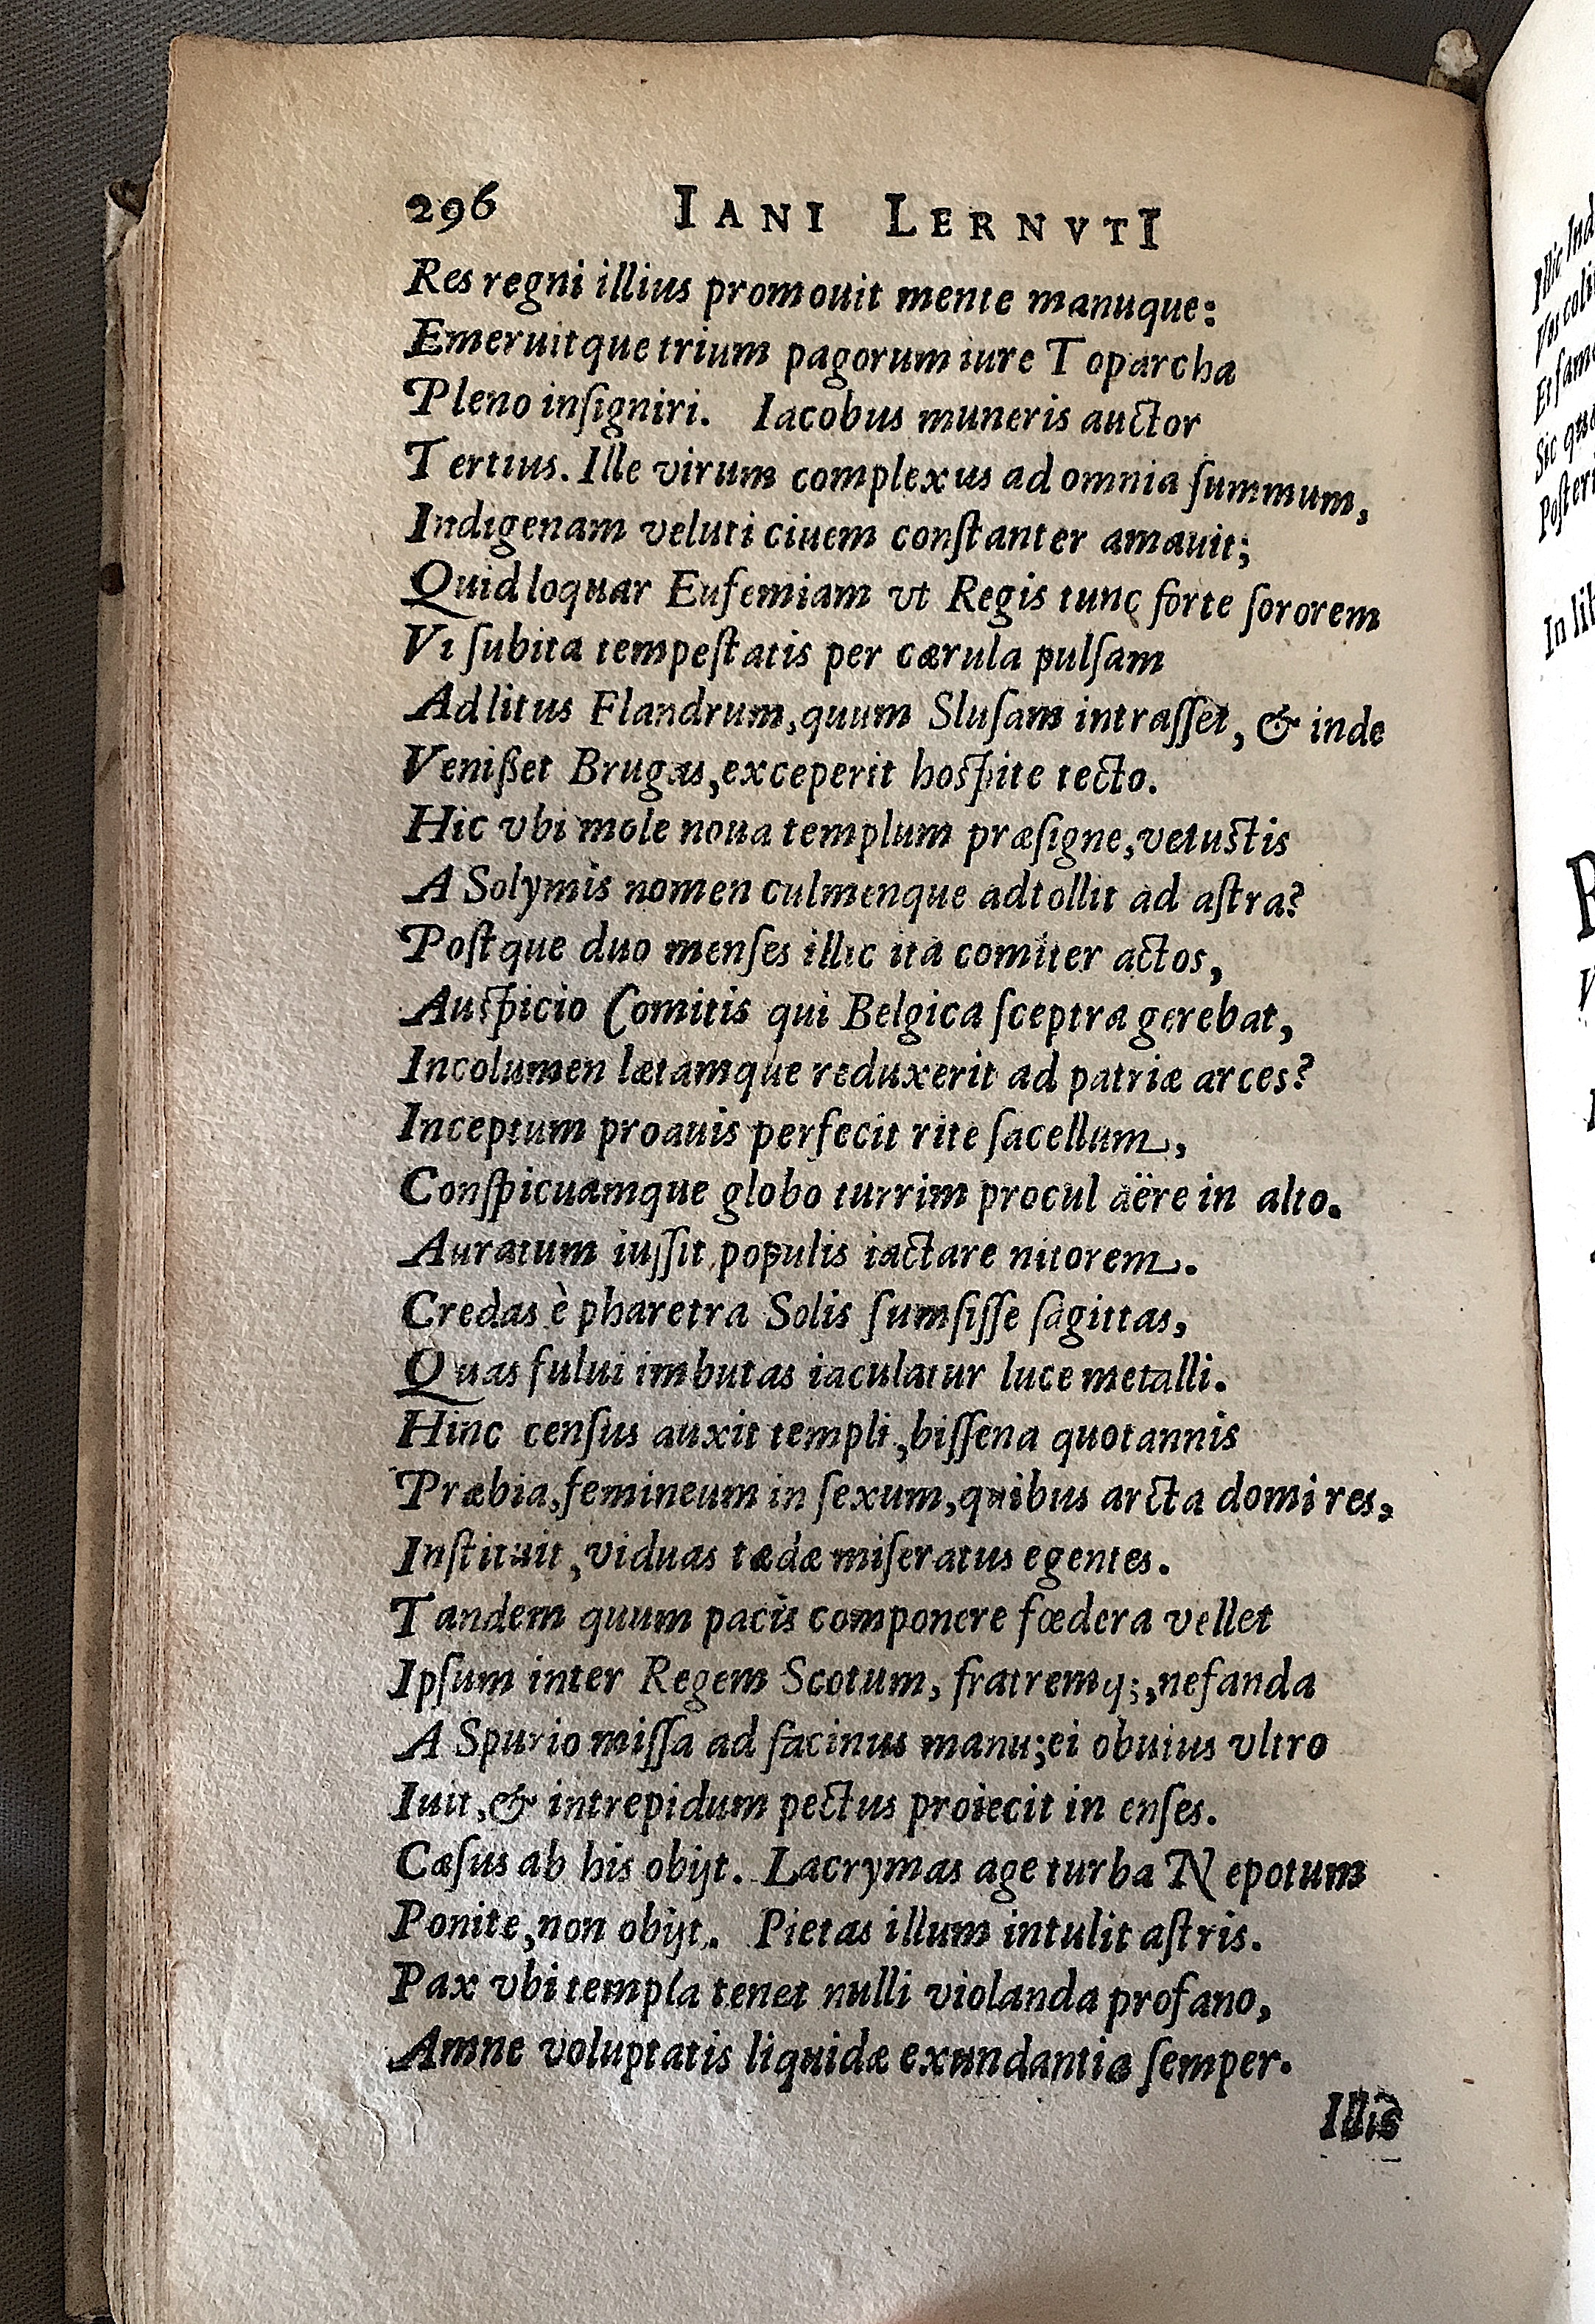 296 IANI LERNVTI
Res regni illius promouit mente manuque:
Emeruitque trium pagorum iure Toparcha
Pleno inſigniri. Iacobus muneris auctor
Tertius. Ille virum complexus ad omnia ſummum,
Indigenam veluti ciuem conſtanter amauit;
Quid loquar Eufemiam vt Regis tunc forte ſororem
Vi ſubita tempeſtatis per cærula pulſam
Ad litus Flandrum, quum Sluſam intraſſet, & inde
Venißet Brugas, exceperit hoſpite tecto.
Hic vbi mole noua templum præſigne, vetuſtis
A Solymis nomen culmenque adtollit ad aſtra?
Poſtque duo menſes illic ita comiter actos,
Auſpicio Comitis qui Belgica ſceptra gerebat,
Incolumen lætamque reduxerit ad patriæ arces?
Inceptum proauis perfecit rite ſacellum,
Conſpicuamque globo turrim procul aëre in alto.
Auratum iuſſit populis iactare nitorem.
Credas è pharetra Solis ſumſiſſe ſagittas,
Quas fului imbutas iaculatur luce metalli.
Hinc cenſus auxit templi, biſſena quotannis
Præbia, femineum in ſexum, quibus arcta domi res,
Inſtituit, viduas tædæ miſeratus egentes.
Tandem quum pacis componere fœdera vellet
Ipſum inter Regem Scotum, fratremq;, nefanda
A Spurio miſſa ad facinus manu; ei obuius vltro
Iuit, & intrepidum pectus proiecit in enſes.
Cæſus ab his obijt. Lacrymas age turba Nepotum
Ponite, non obijt. Pietas illum intulit aſtris.
Pax vbi templa tenet nulli violanda profano,
Amne voluptatis liquidæ exundantia ſemper.
Illis
In lit